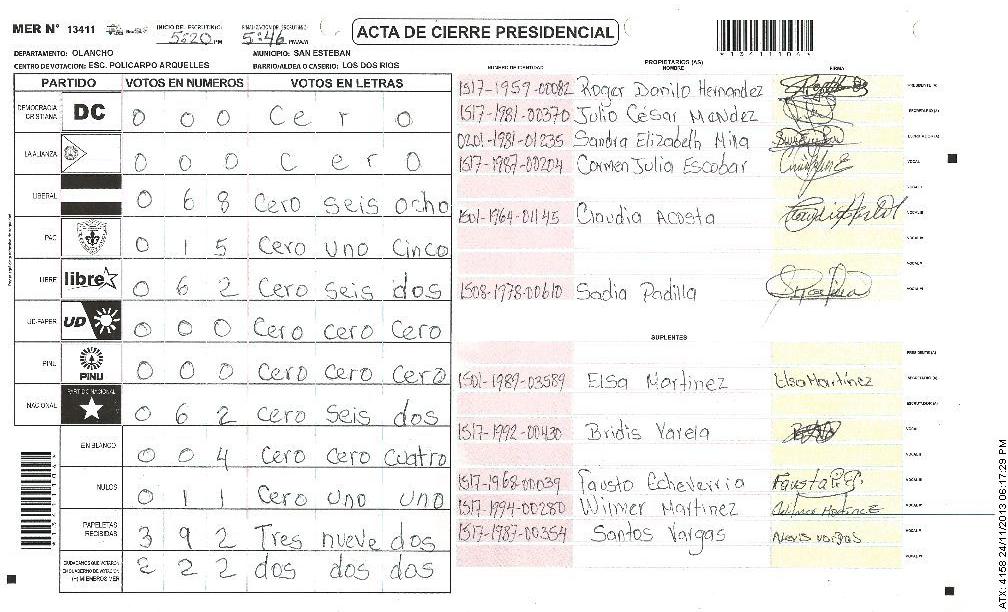 MER N° 13411 INICIO DE ESCRUTINIO: 5:20 PM FINALIZACION DE ESCRUTINIO: 5:46 PM/A.M
ACTA DE CIERRE PRESIDENCIAL
13411064
DEPARTAMENTO: OLANCHO MUNICIPIO: SAN ESTEBAN
CENTRO DE VOTACION: ESC. POLICARPO ARQUELLES BARRIO/ALDEA O CASERIO: LOS DOS RIOS
PARTIDO VOTOS EN NUMEROS VOTOS EN LETRAS
DEMOCRACIA CRISTIANA DC 0 0 0 Cero
LA ALIANZA 0 0 0 cero
LIBERAL 0 6 8 Cero seis ocho
PAC 0 1 5 Cero uno Cinco
LIBRE libre 0 6 2 Cero seis dos
UD-FAPER UD 0 0 0 Cero cero Cero
PINU PINU 0 0 0 Cero cero cero
NACIONAL PARTIDO NACIONAL 0 6 2 cero Seis dos
EN BLANCO 0 0 4 Cero Cero cuatro
NULOS 0 1 1 Cero uno uno
PAPELETAS RECIBIDAS 3 9 2 Tres nueve dos
CIUDADANOS QUE VOTARON EN CUADERNO DE VOTACION (+) MIEMBROS MER 2 2 2 dos dos dos
NUMERO DE IDENTIDAD PROPIETARIOS (AS) NOMBRE FIRMA
1517-1959-00082 Roger Danilo Hernandez PRESIDENTE (A)
1517-1981-00370 Julio César Mendez SECRETARIO (A)
0201-1981-01235 Sandra Elizabeth Mina ESCRUTADOR (A)
1517-1987-00204 Carmen Julia Escobar VOCAL I
VOCAL II
1501-1964-01145 Claudia Acosta VOCAL III
VOCAL IV
VOCAL V
1508-1978-00610 Sadia Padilla VOCAL VI
SUPLENTES
PRESIDENTE (A)
1501-1989-03589 Elsa Martinez Elsa Martínez SECRETARIO (A)
ESCRUTADOR (A)
1517-1992-00430 Bridis Varela VOCAL I
VOCAL II
1517-1968-00039 Fausto Echeverria VOCAL III
1517-1994-00280 Wilmer Martinez VOCAL IV
1517-1987-00354 Santos Vargas VOCAL V
VOCAL VI
ATX: 4158 24/11/2013 06:17:29 PM